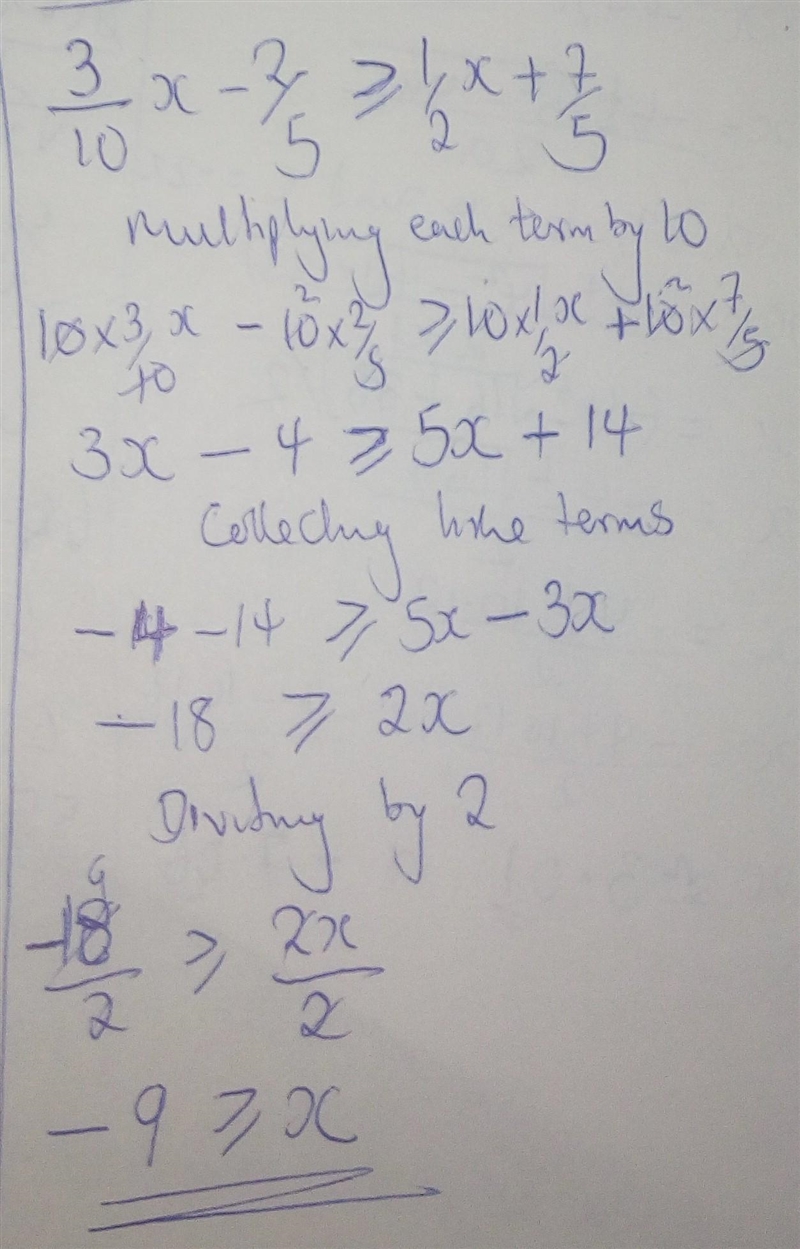 3/10 x - 2/5 ⩾ 1/2 x + 7/5
Multiplying each term by 10
10 x 3/10 x - 10² x 2/5 ⩾ 10 x 1/2 x + 10² x 7/5
3x - 4 ⩾ 5x + 14
Collecting like terms
-4 - 14 ⩾ 5x - 3x
-18 ⩾ 2x
Dividing by 2
9
-18/2 ⩾ 2x/2
-9 ⩾ x